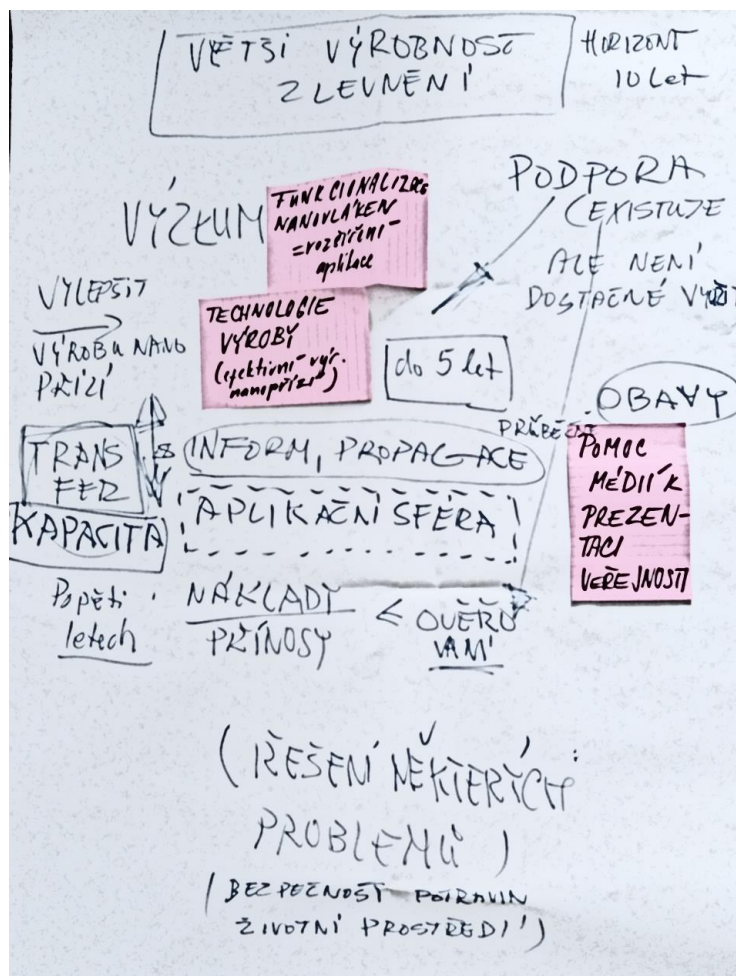 VĚTŠÍ VÝROBNOST
ZLEVNĚNÍ
HORIZONT
10 let
VÝZKUM
FUNKCIONALIZACE
NANOVLÁKEN
=rozšíření
aplikace
PODPORA
(EXISTUJE
ALE NENÍ
DOSTAČNĚ VYUŽIT
VYLEPŠIT
VÝROBU NANO
PŘÍZÍ
TECHNOLOGIE
VÝROBY
(efektivní výr.
nanopřízí)
do 5 let
OBAVY
PRŮBĚŽNĚ
POMOC
MÉDIÍ K
PREZEN-
TACI
VEŘEJNOSTI
TRANS
FER
INFORM, PROPAGACE
KAPACITA
APLIKAČNÍ SFÉRA
Po pěti
letech
NÁKLADY
PŘÍNOSY
< OVĚŘO
VÁNÍ
(ŘEŠENÍ NĚKTERÝCH
PROBLEMŮ)
(BEZPEČNOST POTRAVIN
ŽIVOTNÍ PROSTŘEDÍ)